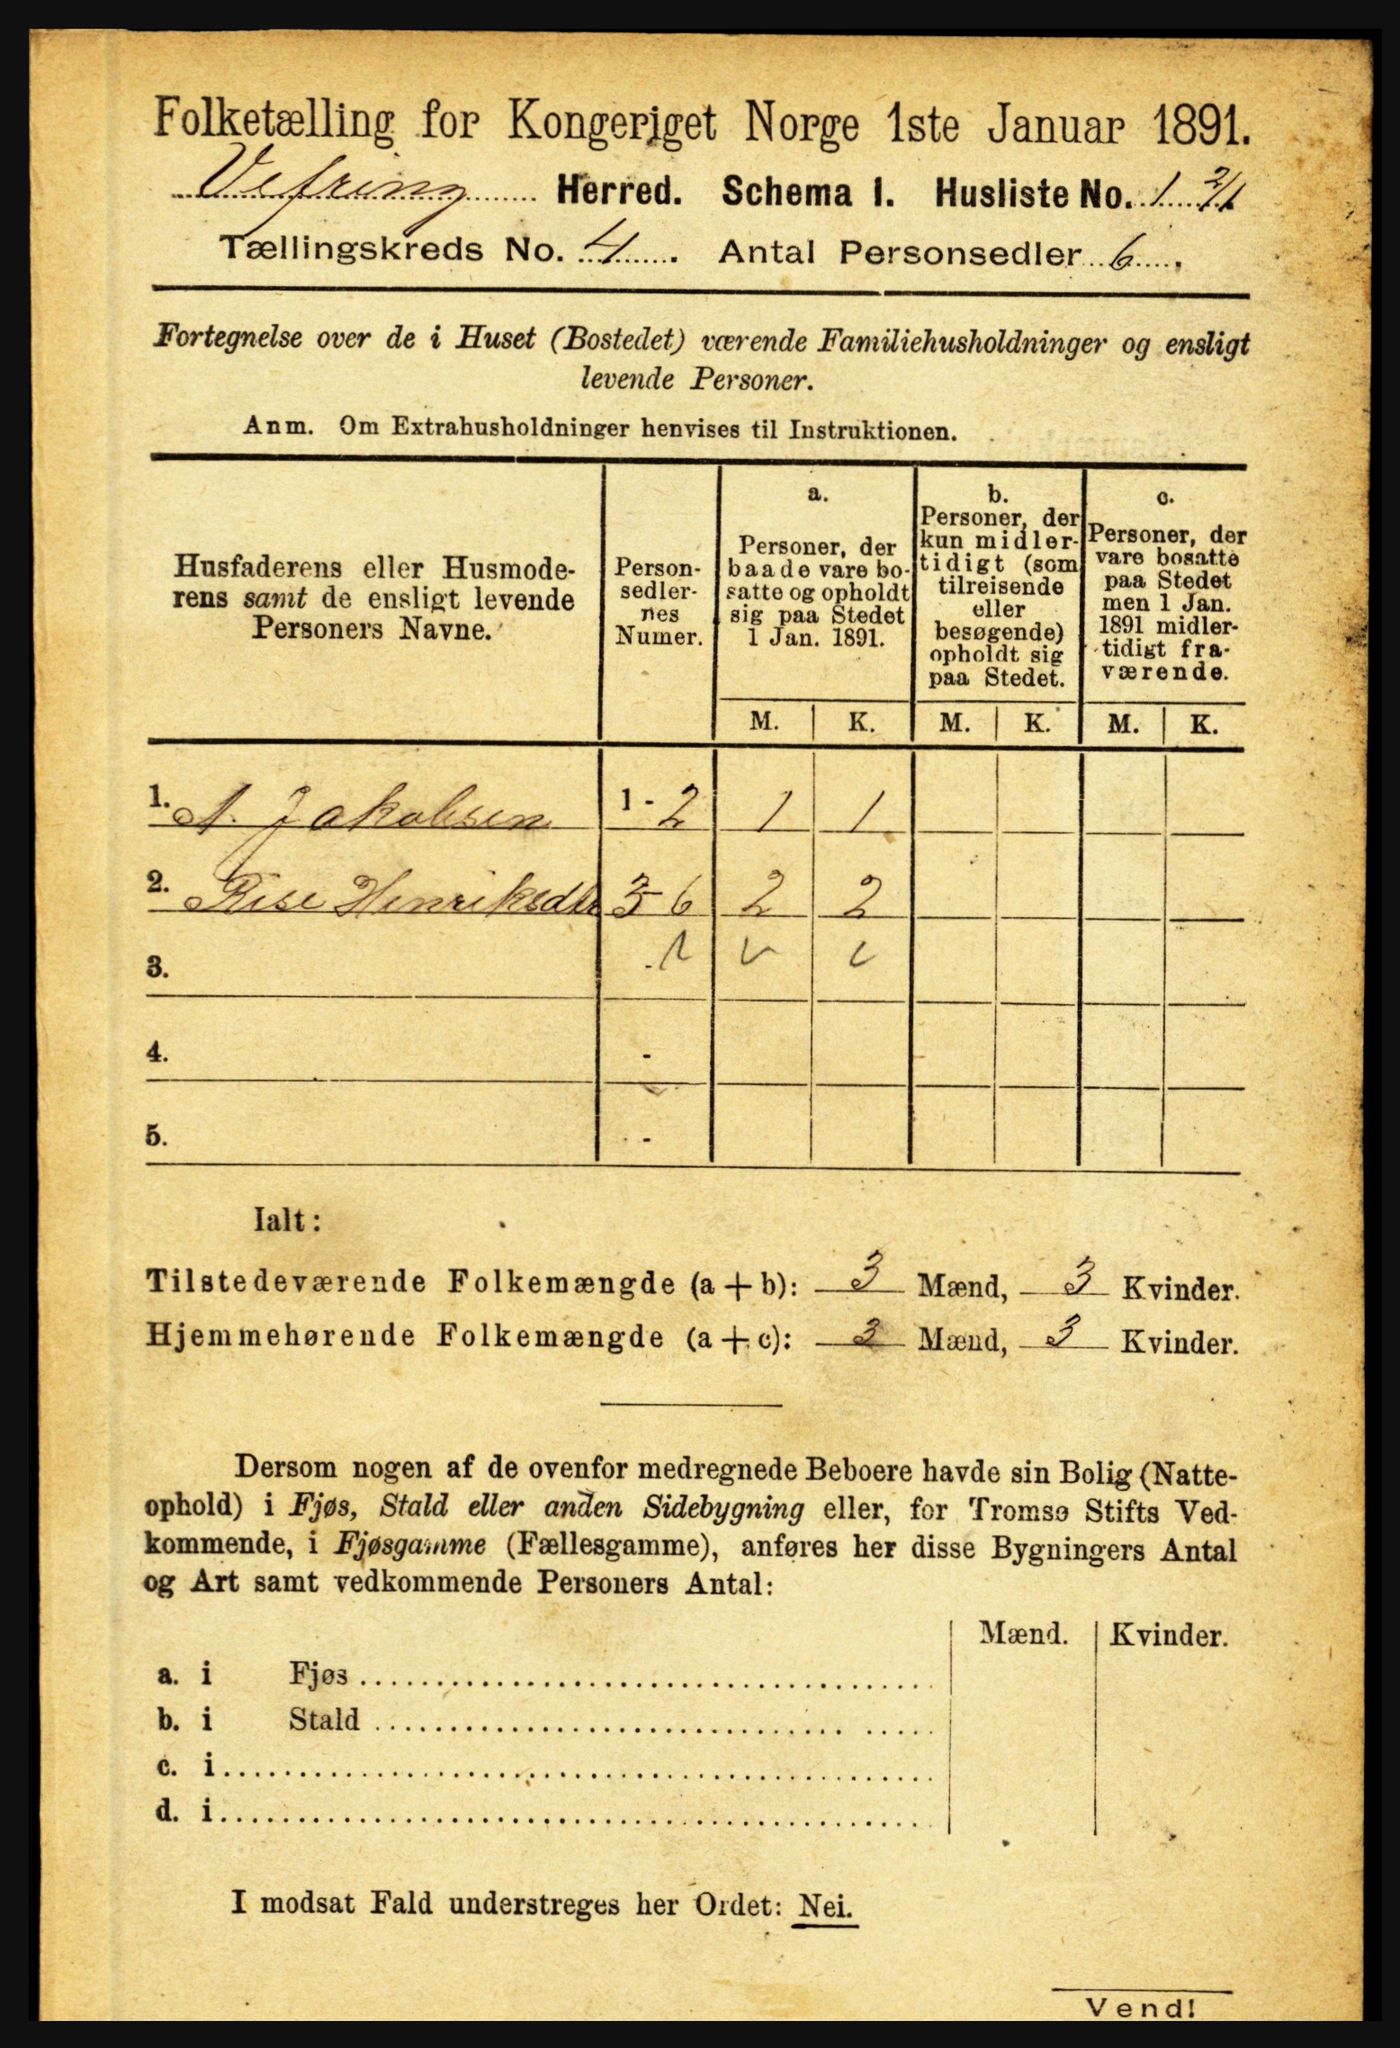 Folketælling for Kongeriget Norge 1ste Januar 1891.
Vefring Herred. Schema 1. Husliste No. 1
Tællingskreds No. 4. Antal Personsedler 6.
Fortegnelse over de i Huset (Bostedet) værende Familiehusholdninger og ensligt
levende Personer.
Anm. Om Extrahusholdninger henvises til Instruktionen.
Husfaderens eller Husmode-
rens samt de ensligt levende
Personers Navne.
Person-
sedler-
nes
Numer.
a.
Personer, der
baade vare bo-
satte og opholdt
sig paa Stedet
1 Jan. 1891.
b.
Personer, der
kun midler-
tidigt (som
tilreisende
eller
besøgende)
opholdt sig
paa Stedet.
c.
Personer, der
vare bosatte
paa Stedet
men 1 Jan.
1891 midler-
tidigt fra-
værende.
M. K. M. K. M. K.
1. A. Jakobsen 1 - 2 1 1
2. Henriksdtr 3 6 2 2
3.
4. -
5. -
Ialt:
Tilstedeværende Folkemængde (a + b): 3 Mænd, 3 Kvinder.
Hjemmehørende Folkemængde (a + c): 3 Mænd, 3 Kvinder.
Dersom nogen af de ovenfor medregnede Beboere havde sin Bolig (Natte-
ophold) i Fjøs, Stald eller anden Sidebygning eller, for Tromsø Stifts Ved-
kommende, i Fjøsgamme (Fællesgamme), anføres her disse Bygningers Antal
og Art samt vedkommende Personers Antal:
Mænd. Kvinder.
a. i Fjøs
b. i Stald
c. i
d. i
I modsat Fald understreges her Ordet: Nei.
Vend!